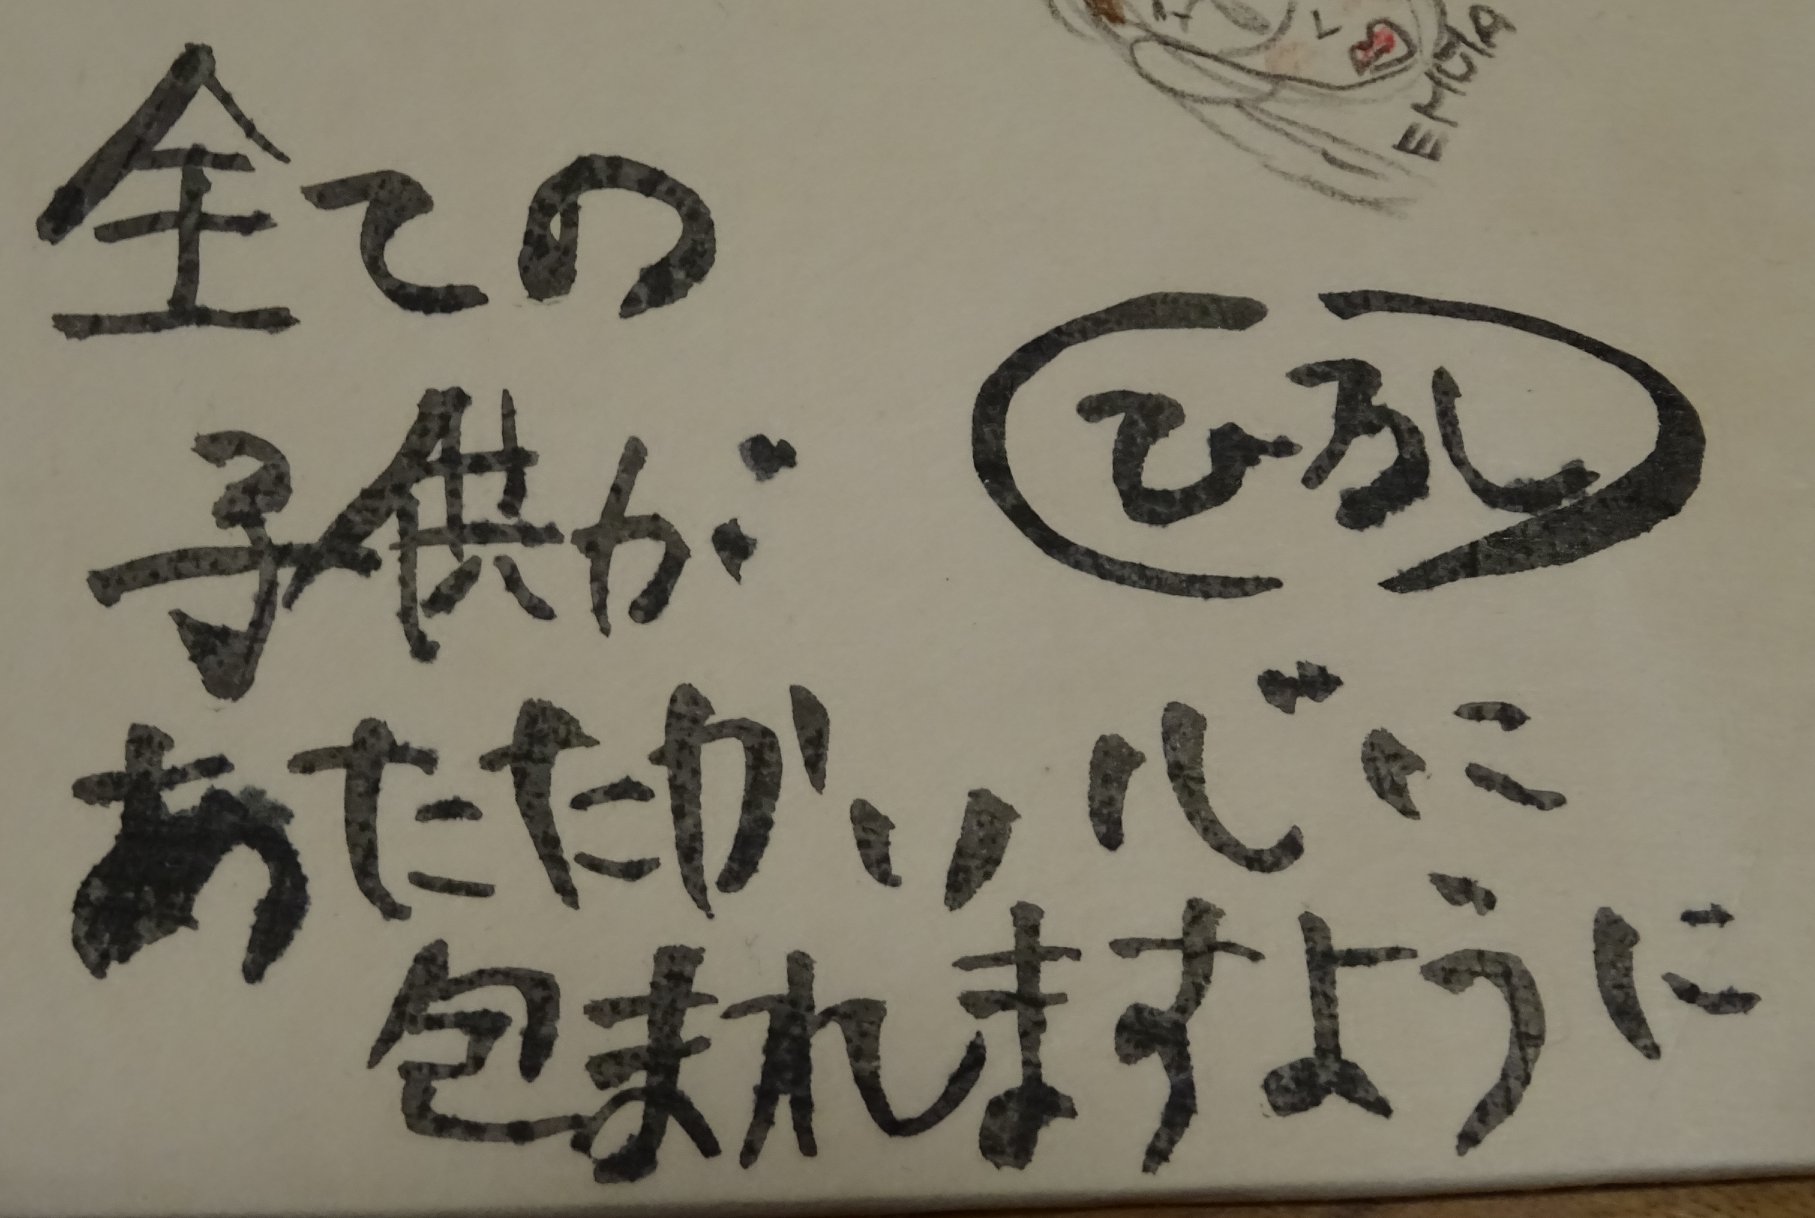 EMUTA
全ての
ひろし
子供が
あたたかい心に
包まれますように